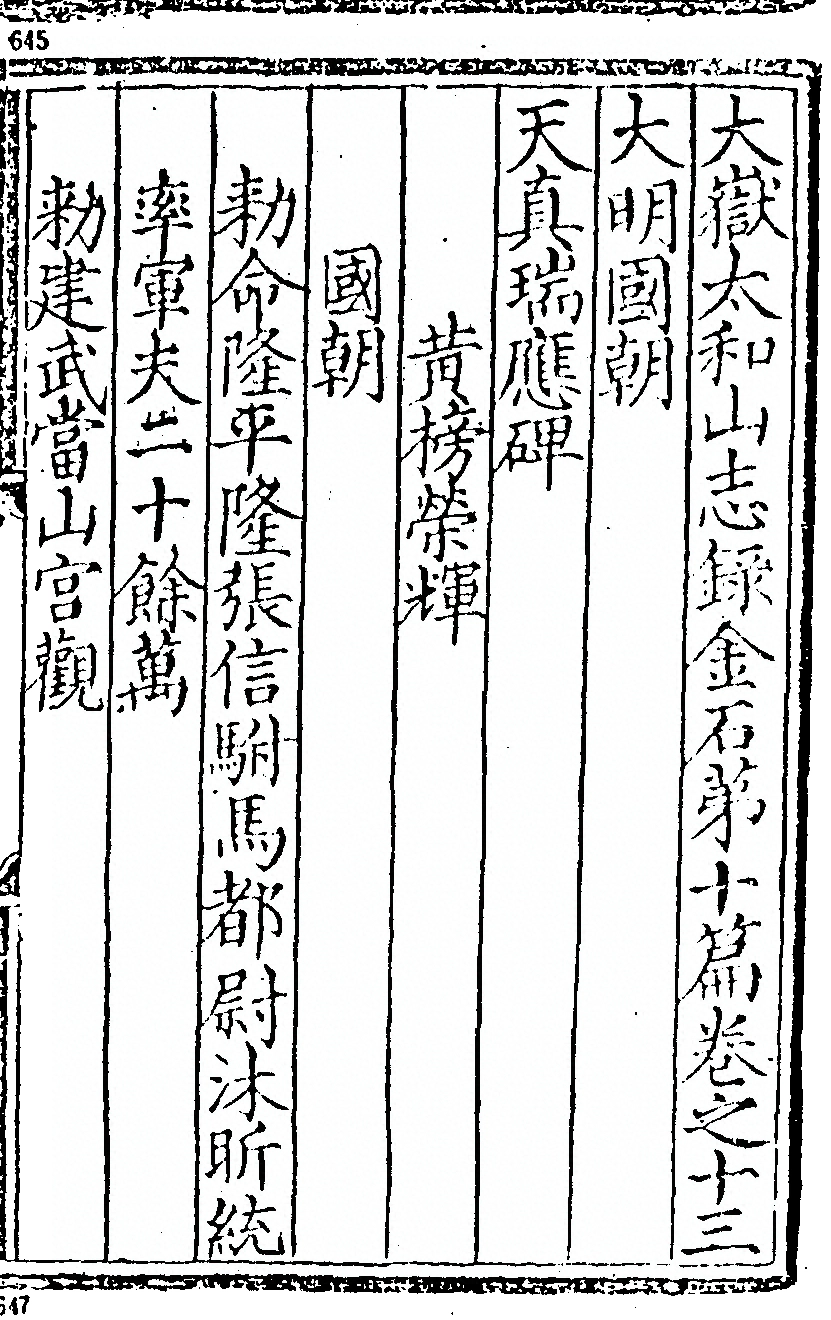 645
大嶽太和山志錄金石第十篇卷之十三
大明國朝
天真瑞應碑
黃榜榮輝
國朝
勑命隆平隆張信駙馬都尉沐昕統
率軍夫二十餘萬
勑建武當山宮觀
647